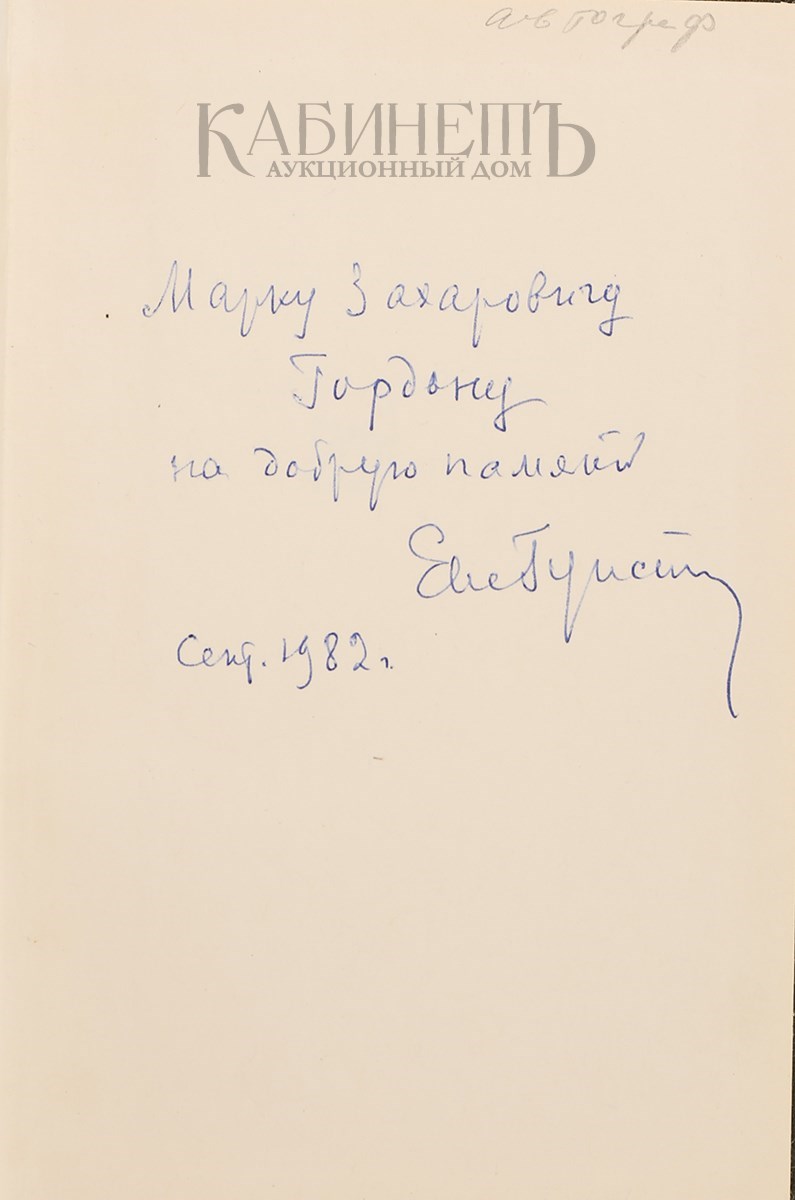 автограф
КАБИНЕТЪ
АУКЦИОННЫЙ ДОМ
Марку Захаровичу
Гордону
на добрую память
Сент. 1982 г.